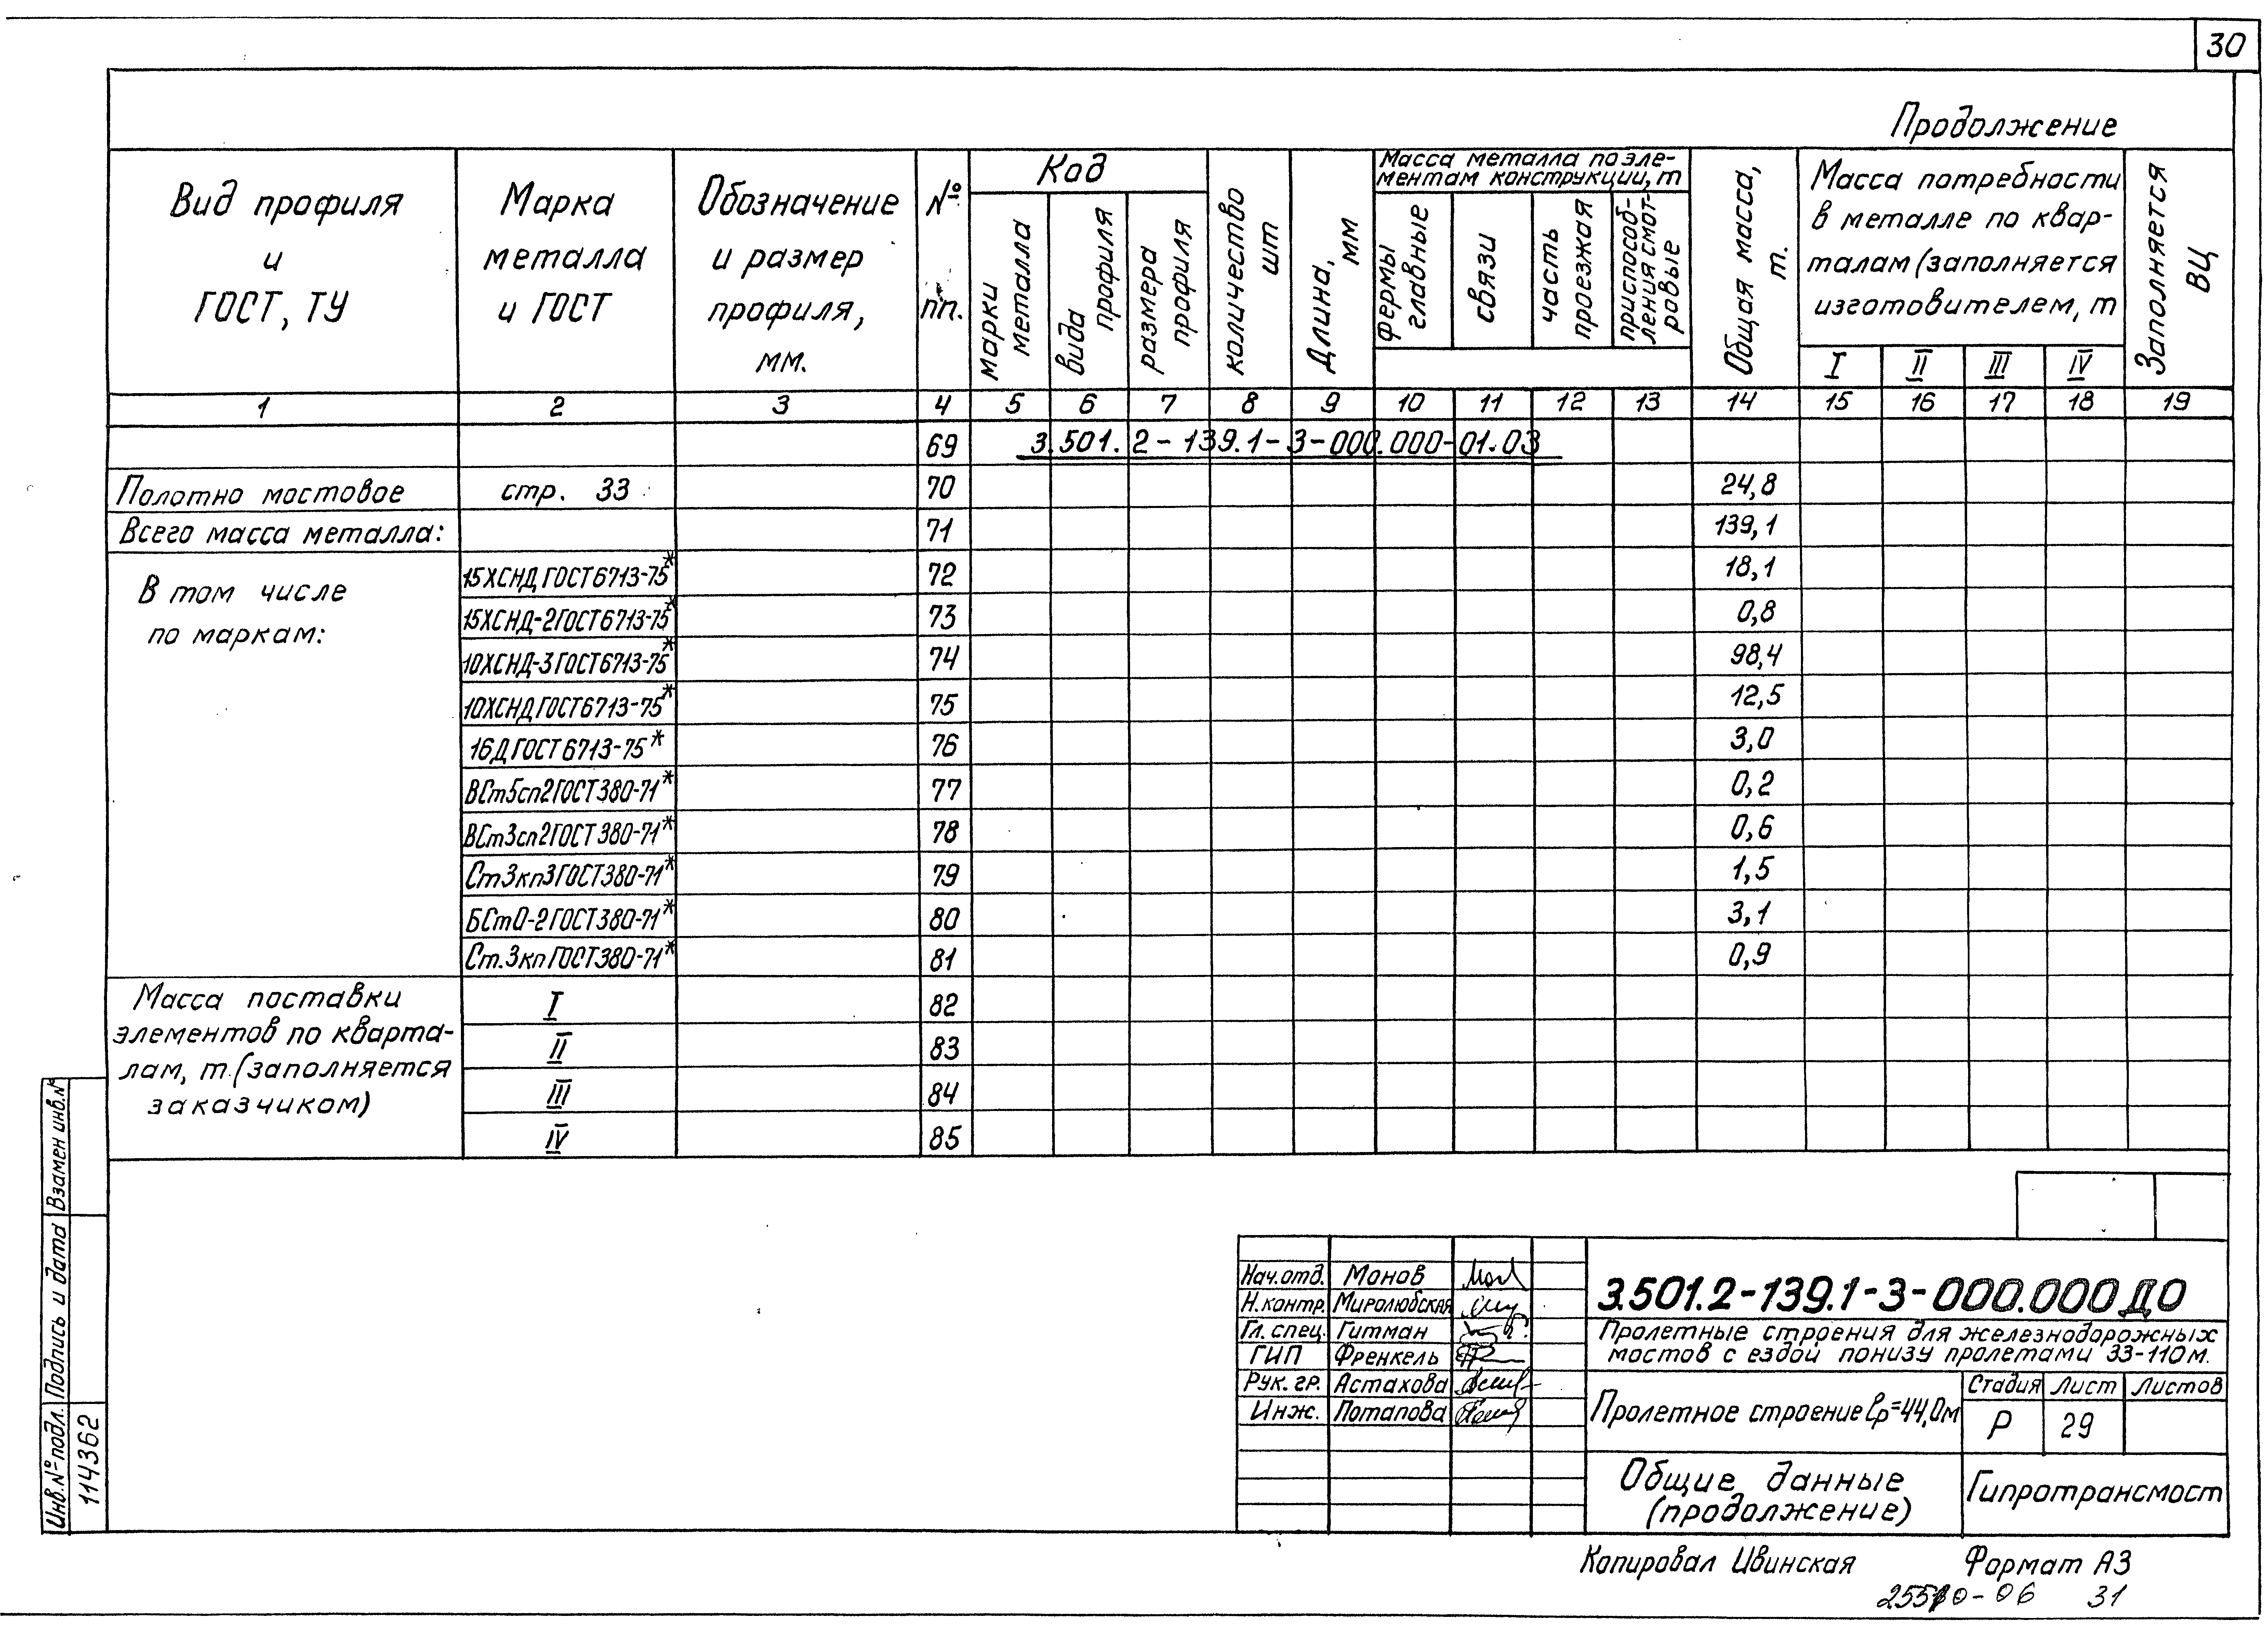 30
Продолжение
Вид профиля
и
ГОСТ, ТУ
Марка
металла
и ГОСТ
Обозначение
и размер
профиля,
мм.
№
пп.
Код
марки
металла
вида
профиля
размера
профиля
количество
шт
Длина,
мм
Масса металла по эле-
ментам конструкции, т
фермы
главные
связи
часть
проезжая
приспособ-
ления смот-
ровые
Общая масса,
т.
Масса потребности
в металле по квар-
талам (заполняется
изготовителем, т
I II III IV
Заполняется
ВЦ
1 2 3 4 5 6 7 8 9 10 11 12 13 14 15 16 17 18 19
69 3.501.2-139.1-3-000.000-01.03
Полотно мостовое стр. 33 70 24,8
Всего масса металла: 71 139,1
В том числе
по маркам:
15ХСНД ГОСТ6713-75* 72 18,1
15ХСНД-2ГОСТ6713-75* 73 0,8
10ХСНД-3ГОСТ6713-75* 74 98,4
10ХСНДГОСТ6713-75* 75 12,5
16Д ГОСТ 6713-75* 76 3,0
ВСт5сп2ГОСТ380-71* 77 0,2
ВСт3сп2ГОСТ380-71* 78 0,6
Ст3кп3ГОСТ380-71* 79 1,5
БСт0-2ГОСТ380-71* 80 3,1
Ст.3кпГОСТ380-71* 81 0,9
Масса поставки
элементов по кварта-
лам, т.(заполняется
заказчиком)
I 82
II 83
III 84
IV 85
Взамен инв.№
Подпись и дата
Инв.№подл.
114362
Нач.отд. Монов
Н.контр. Миролюбская
Гл. спец. Гитман
ГИП Френкель
Рук. гр. Астахова
Инж. Потапова
3.501.2-139.1-3-000.000 ДО
Пролетные строения для железнодорожных
мостов с ездой понизу пролетами 33-110м.
Пролетное строение lр=44,0м
Стадия Лист Листов
Р 29
Общие данные
(продолжение)
Гипротрансмост
Копировал Ивинская Формат А3
31